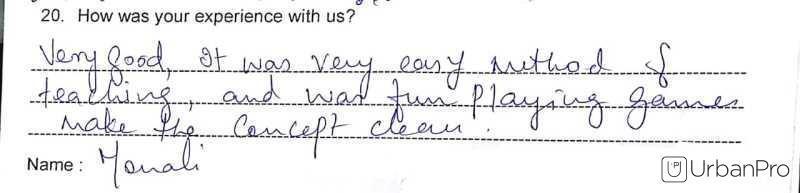 20. How was your experience with us?
Very Good, It was very easy method of
teaching, and was fun playing games
make the concept clear.
Name : Monali
UrbanPro